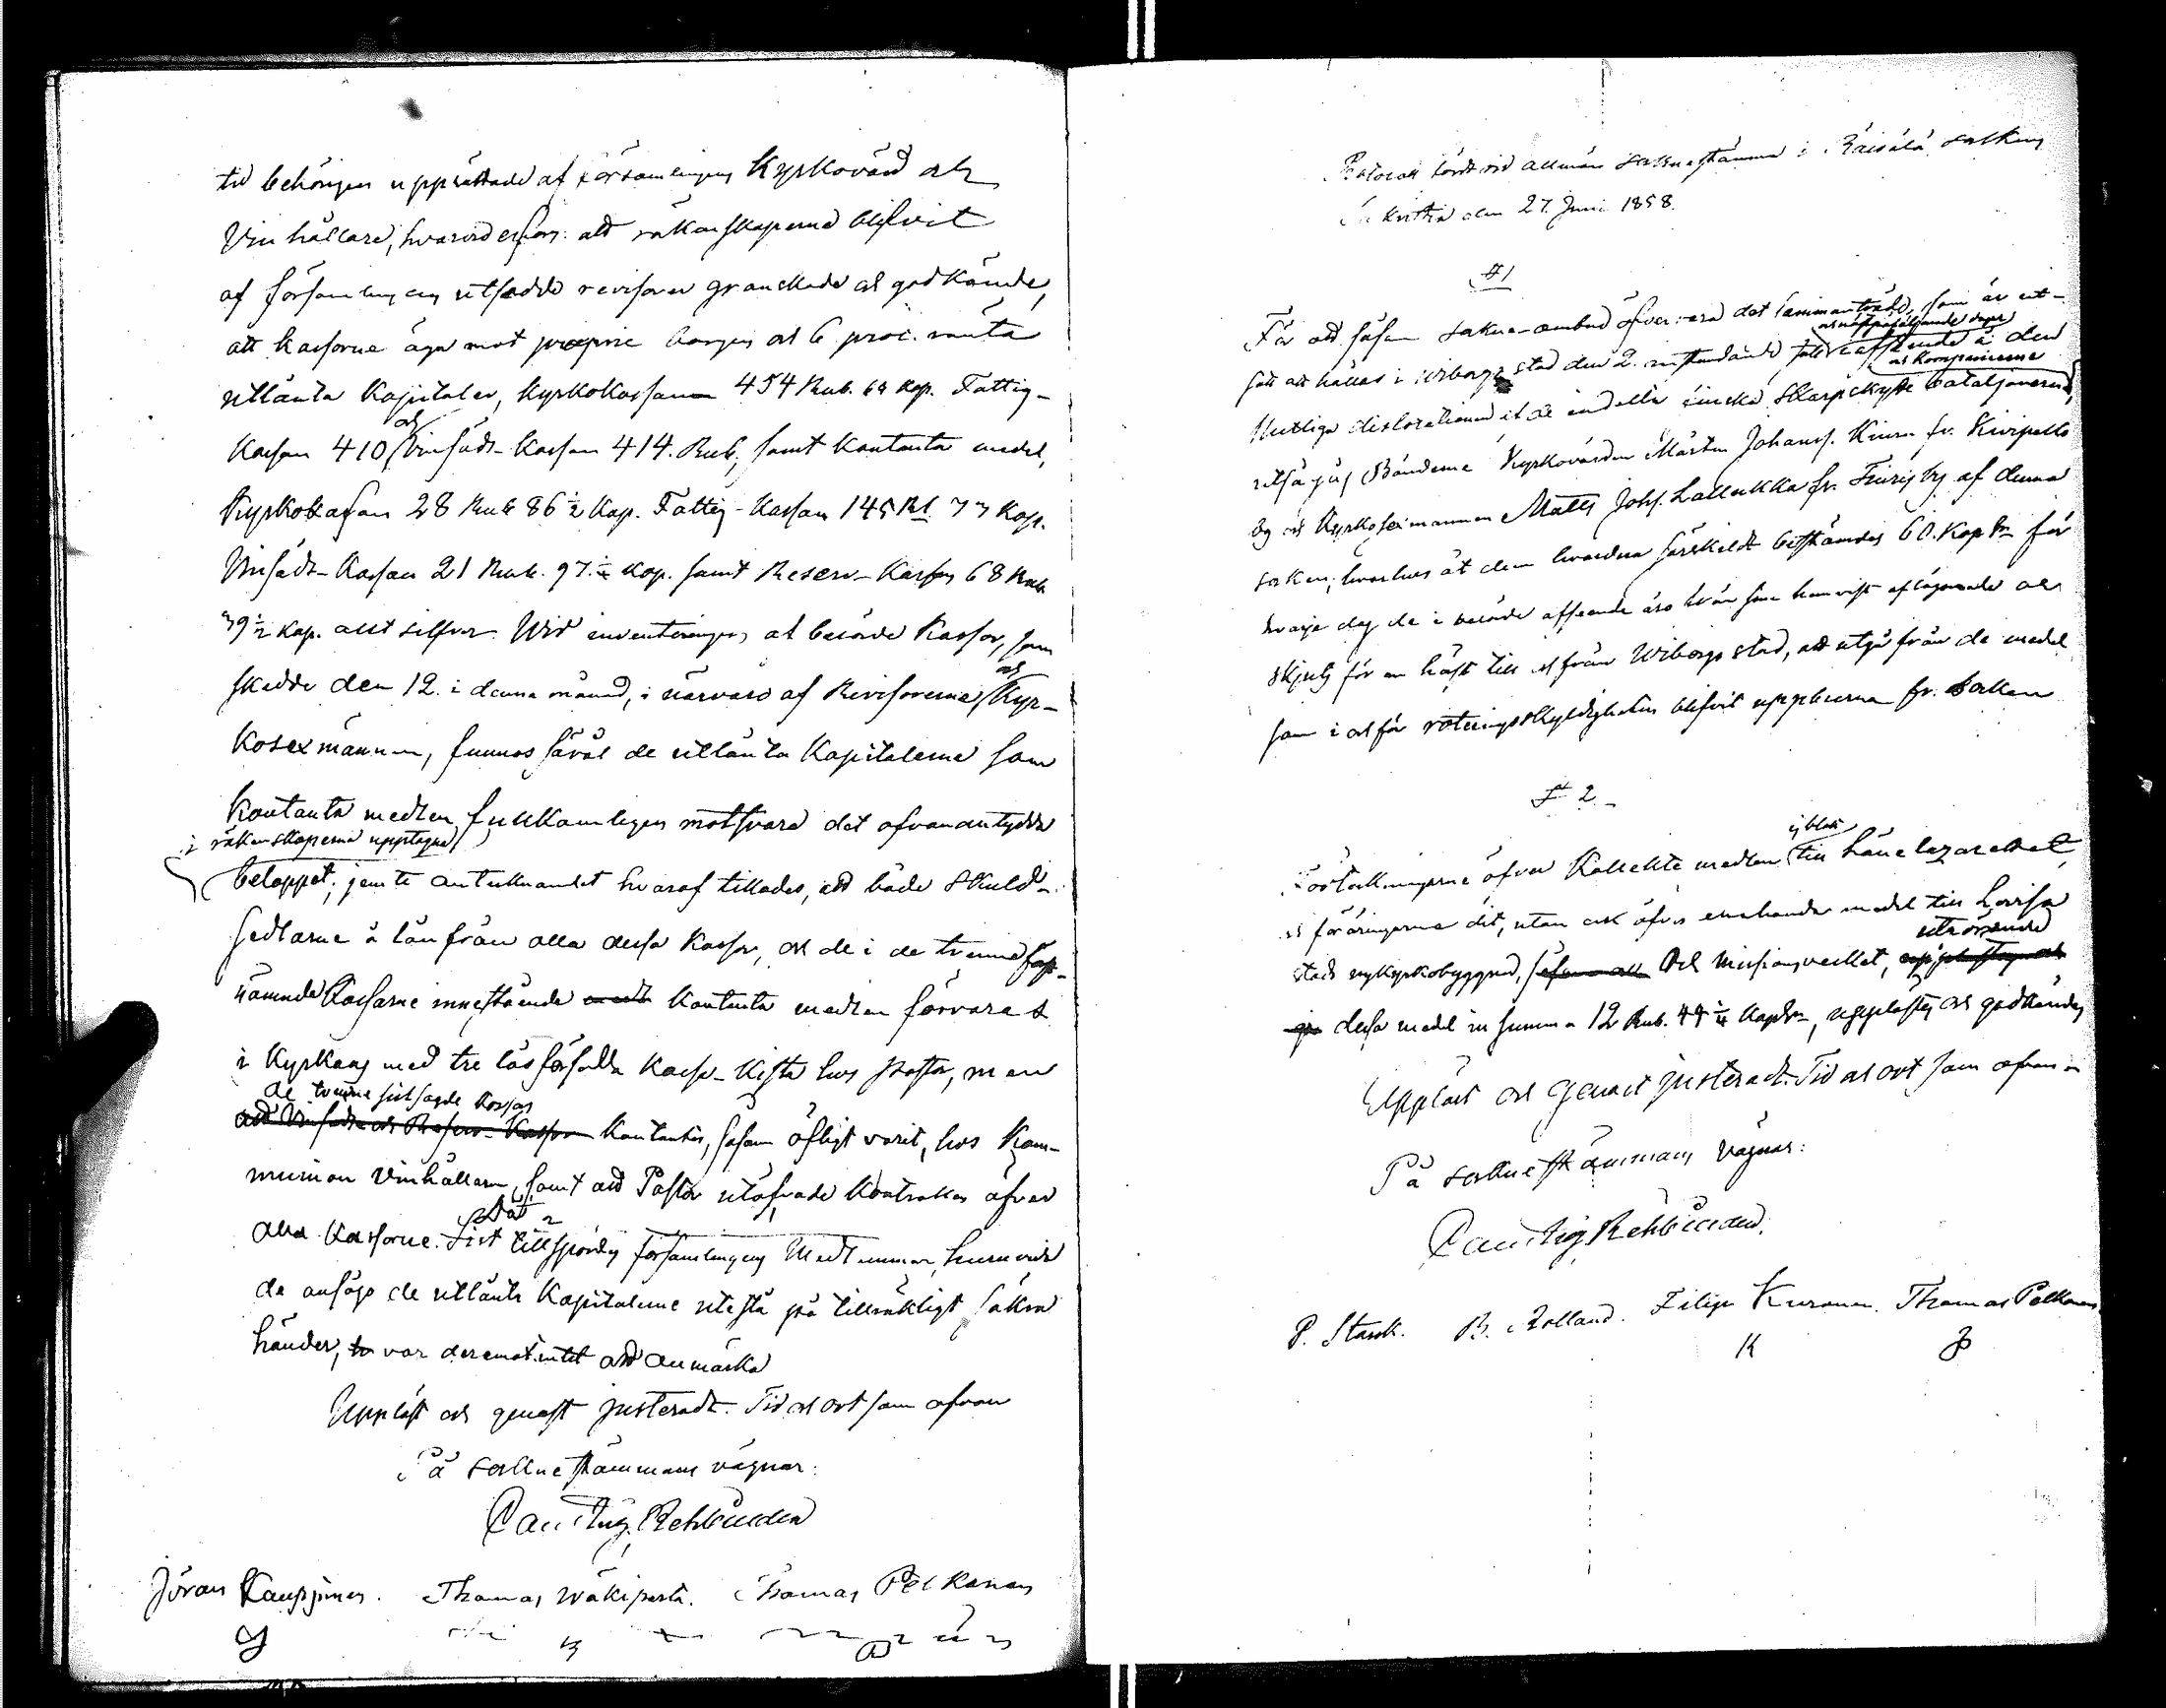 till behörigen upprättade af församlingens Kyrkovärd och
Vinhållare, hvarvid erfors: att räkenskaperna blifvit
af församlingens utsedde revisorer granskade och godkände,
att kassorne äga mot proprie borgen och 6 proc. ränta
utlånta kapitaler, Kyrkokassan 454 Rub. 68 kop. Fattig-
kassan 410 och Vinsäds-kassan 414. Rub., samt kontanta medel,
Kyrkokassan 28 Rub 86 1/2 kop. Fattig-kassan 145 Rub. 77 kop.
Vinsäds-kassan 21 Rub. 97 kop. samt Reserv-kassan 68 Rub
79 1/2 kop. allt silfver. Wid inventeringen af berörde kassor, som
skedde den 12. i denna månad, i närvaro af Revisorerne och Kyr-
kosexmännen, funnos såväl de utlånta kapitalerne som
kontanta medlen fullkomligen motsvara det ofvanantydda
i räkenskaperna upptagna
beloppet; jemte antecknandet hvaraf tillades, att både skuld-
sedlarne å lån från alla dessa kassor, och de i de trenne
nämnde kassorne innestående kontanta medlen förvaras
i Kyrkans med tre lås försedda kassa-kista hos Pastor, men
de tvenne sistsagde kassors
att Vinsäds och Reserv-kassan kontanter, såsom öfligt varit, hos Kom-
munion Vinhållaren, samt att Pastor utöfvade kontrollen öfver
alla kassorne. Sist tillspordes församlingens Medlemmar, huruvida
de ansågo de utlånta kapitalerne utestå på tillräkligt säkra
händer, var deremot intet att anmärka
Uppläst och genast justeradt. Tid och ort som ofvan
På sockne stämmans vägnar:
Carl Aug. Rehbinder
Jöran Kauppinen. Thomas Wäkiparta. Thomas Pelkonen
Protocoll fördt vid allmän sockne stämma i Räisälä sockens
Sakristia den 27. Juni 1858.
§ 1
För att såsom sockne-ombud öfvervara det sammanträde, som är ut-
och nästpåföljande dagar
satt att hållas i Wiborgs stad den 2. instundande Juli afseende å den
och kompanierna
slutliga dislocationen af de indelta finska skarpskytte bataljonerna,
utsågos Bönderne Kyrkovärden Mårten Johanss. Kiuru fr. Kivipelto
by och Kyrkosexmannen Matts Johs. Lallukka fr. Tiuris by af denna
socken, hvarhos åt dem hvardera särskildt bestämdes 60. Kop Sr för
hvarje dag de i berörde afseende äro från sina hemvist aflägsnade och
skjuts för en häst till och från Wiborgs stad, att utgå från de medel
som i och för roteringsskyldigheten blifvit uppburna fr. socken
§ 2.
ej blott
Förteckningarne öfver Kollekte medlen till länelazarettet
och föräringarne dit, utan ock öfver enahanda medel till Lovisa
utvisande
stads nykyrkobyggnad, och Missionsverket,
dessa medel in summa 12 Rub. 44 1/4 Kop Sr, upplästes och godkändes
Uppläst och genast justeradt. Tid och ort som ofvan
På sockne stämmans vägnar:
Carl Aug. Rehbinder.
P. Stark. B. Rolland. Filip Kuronen. Thomas Pelkonen
K